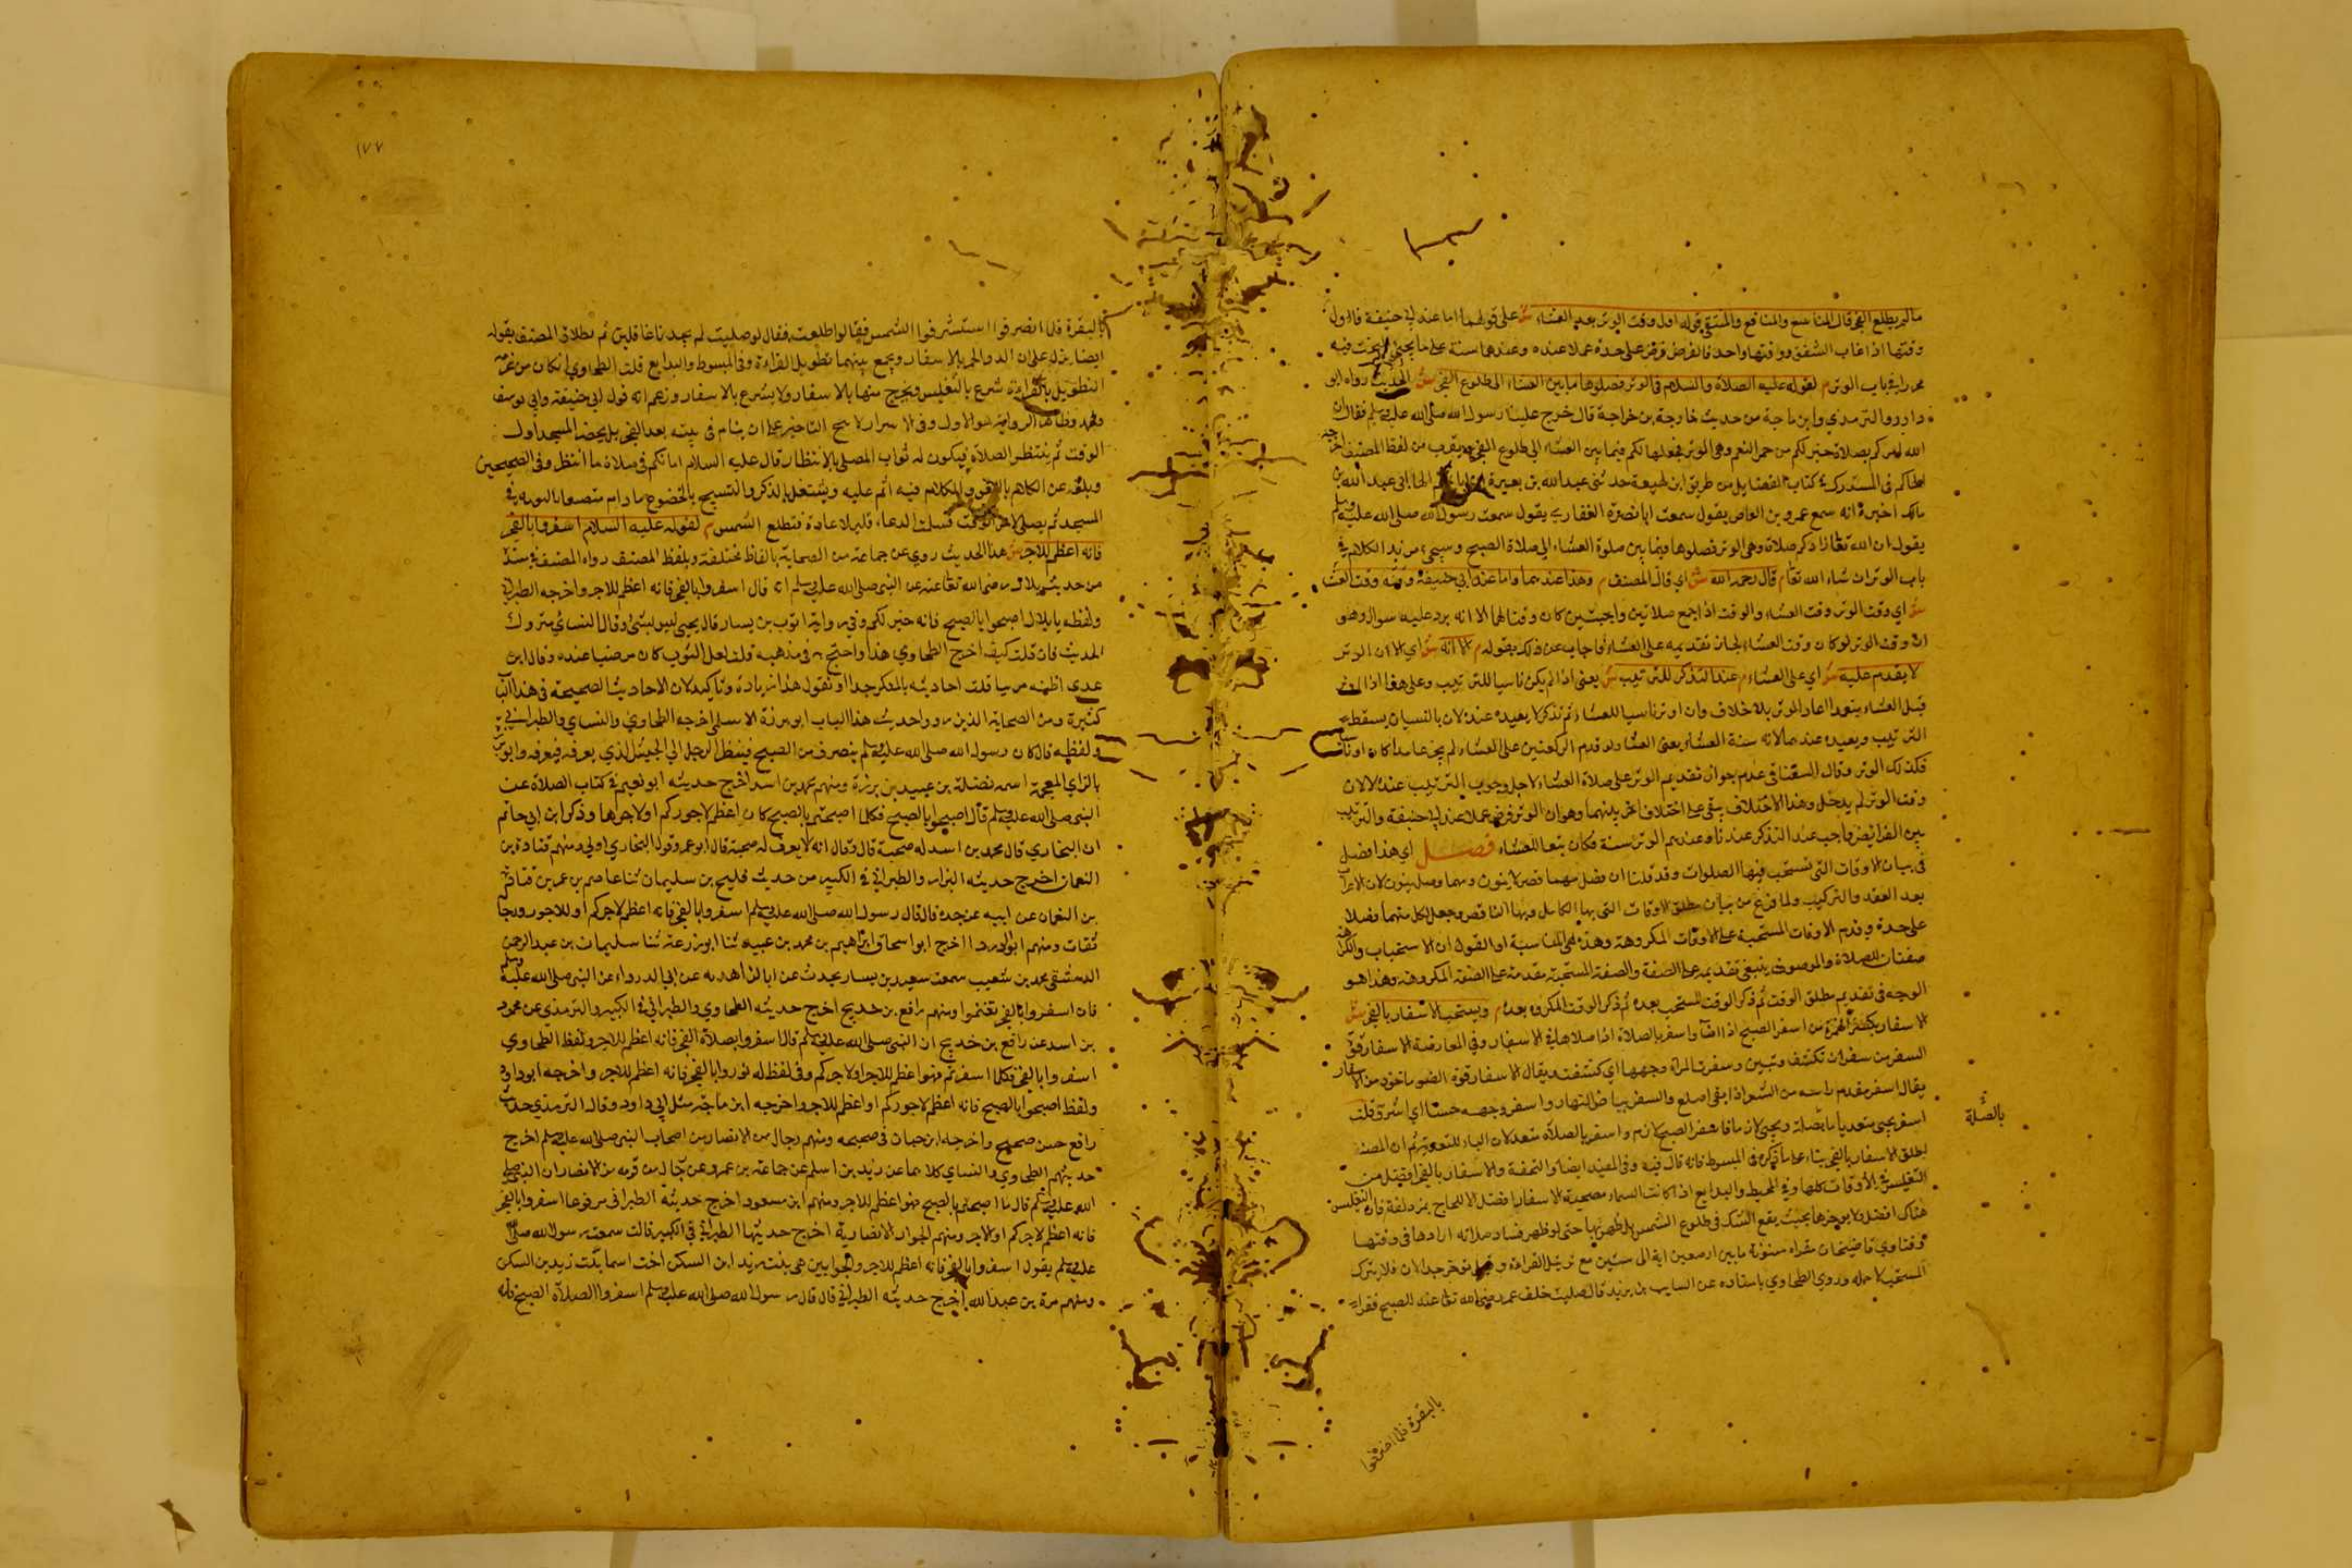 ما لم يطلع الفجر قال المنافع والمستقى قوله اول وقت الوتر بعد العشاء ش على قولهما اما عند ابي حنيفة فاول
وقتها اذا غاب الشفق ووقتها واحد فالفرض فرض على حدة عملا عنده وعندهما سنة على ما يجئ البحث فيه
في باب الوتر م لقوله عليه الصلاة والسلام في الوتر فصلوها ما بين العشاء الى طلوع الفجر ش الحديث رواه ابو
داود والترمذي وابن ماجة من حديث خارجة بن خراجة قال خرج علينا رسول الله صلى الله عليه وسلم فقال ان
الله امركم بصلاة خير لكم من حمر النعم وهي الوتر فجعلها لكم فيما بين العشاء الى طلوع الفجر ويقرب من لفظ المصنف اخرجه
الحاكم في المستدرك في كتاب الفضايل من طريق ابن لهيعة حدثني عبد الله بن هبيرة ان ابا تميم الجاباني عبد الله بن
مالك اخبره انه سمع عمرو بن العاص يقول سمعت ابا نضرة الغفاري يقول سمعت رسول الله صلى الله عليه وسلم
يقول ان الله تعالى زادكم صلاة وهي الوتر فصلوها فيما بين صلوة العشاء الى صلاة الصبح وسيجيء مزيد الكلام في
باب الوتر ان شاء الله تعالى م قال رحمه الله ش اي قال المصنف م وهذا عندهما واما عند ابي حنيفة وقته وقت العشاء
ش اي وقت الوتر وقت العشاء والوقت اذا جمع صلاتين واجبتين كان وقتا لهما الا انه يرد عليه سوال وهو
ان وقت الوتر لو كان وقت العشاء لجاز تقديمه على العشاء فاجاب عن ذلك بقوله م الا انه ش اي الا ان الوتر
لا يقدم عليه ش اي على العشاء م عند التذكر للترتيب ش يعني اذا لم يكن ناسيا للترتيب وعلى هذا اذا اوتر
قبل العشاء متعمدا اعاد الوتر بلا خلاف وان اوتر ناسيا للعشاء ثم تذكر لا يعيده عنده لان بالنسيان يسقط
الترتيب ويعيده عندهما لانه سنة العشاء يعني العشاء ولو قدم الركعتين على العشاء لم يجز عامدا كان او ناسيا
فكذلك الوتر وقال السغناقي عدم جواز تقديم الوتر على صلاة العشاء لاجل وجوب الترتيب عنده لا لان
وقت الوتر لم يدخل وهذا الاختلاف يبقى على اختلاف اخر بينهما وهو ان الوتر فرض عملا عند ابي حنيفة والترتيب
بين الفرائض واجب عند التذكر عندنا وعندهم الوتر سنة فكان تبعا للعشاء فصل اي هذا فصل
في بيان الاوقات التي تستحب فيها الصلوات وقد قلنا ان فصل مهما فصل لا ينون ومهما وصل ينون لان الاعراب
بعد العقد والتركيب ولما فرغ من بيان مطلق الاوقات التي بها الكامل وبها الناقص وجعل لكل منهما فصلا
على حدة وقدم الاوقات المستحبة على الاوقات المكروهة وهذه هي المناسبة او القول ان الاستحباب والكراهة
صفتان للصلاة والموصوف ينبغي تقديمه على الصفة والصفة المستحبة مقدمة على الصفة المكروهة وهذا هو
الوجه في تقديم مطلق الوقت ثم ذكر الوقت المستحب بعده ثم ذكر الوقت المكروه بعده م ويستحب الاسفار بالفجر ش
الاسفار بكسر الهمزة من اسفر الصبح اذا اضاء واسفر بالصلاة اذا صلاها في الاسفار وفي المعارضة الاسفار قوة
السفر من سفران تكشف وتبين وسفرت المرأة وجهها اي كشفت ويقال الاسفار قوة الضوء ماخوذ من الاسفار
يقال اسفر مقدم راسه من الشعر اذا بقي اصلع والسفر بياض النهار واسفر وجهه حسنا اي اشرق قلت
اسفر يجئ متعديا بالصلة ويجئ لازما فاسفر الصبح لازم واسفر بالصلاة متعد لان الباء للتعدية ثم ان المصنف
اطلق الاسفار بالفجر بناء على ما ذكره في المبسوط فانه قال فيه وفي المفيد ايضا والتحفة والاسفار بالفجر افضل من
التغليس في الاوقات كلها وفي المحيط والبدايع اذا كانت السماء مصحية الاسفار افضل الا للحاج بمزدلفة فان التغليس
هناك افضل ولا يوخرها بحيث يقع الشك في طلوع الشمس بل يصليها حتى لو ظهر فساد صلاته اعادها في وقتها
وفتاوى قاضيخان مقراه مسنونة ما بين اربعين اية الى ستين مع ترتيل القراءة وقيل يؤخر جدا لان فلا يترك
المستحب لاجله وروي الطحاوي باسناده عن السايب بن يزيد قال صليت خلف عمر رضي الله تعالى عنه الصبح فقراء
بالصلة
بالبقرة فلما انصرفوا
١٧٧
بالبقرة فلما انصرفوا استشرفوا الشمس فقالوا طلعت فقال لو صليت لم يجدنا غافلين ثم بطلاق المصنف بقوله
ايضا يدل على ان البد والختم بالاسفار ويجمع بينهما تطويل القراءة وفي المبسوط والبدايع قلت الطحاوي ان كان من عزمه
التطويل بالقراءة شرع بالتغليس ويخرج منها بالاسفار ولا يشرع بالاسفار وزعم انه قول ابي حنيفة وابي يوسف
ومحمد وظاهر الرواية هو الاول وفي الاسرار لا يبح التاخير على ان ينام في بيته بعد الفجر بل يحضر المسجد اول
الوقت ثم ينتظر الصلاة فيكون له ثواب المصلي بالانتظار قال عليه السلام انكم في صلاة ما انتظر وفي الصحيحين
المسجد ثم يصلي لاخر الوقت قليلا لاعادة فتطلع الشمس م لقوله عليه السلام اسفروا بالفجر
فانه اعظم للاجر ش هذا الحديث روي عن جماعة من الصحابة بالفاظ مختلفة وبلفظ المصنف رواه المصنف في سنده
من حديث بلال رضي الله تعالى عنه عن النبي صلى الله عليه وسلم انه قال اسفروا بالفجر فانه اعظم للاجر واخرجه الطبراني
ولفظه يا بلال اصبحوا بالصبح فانه خير لكم وفي روايته ايوب بن يسار قال يحيى ليس بشئ وقال النسائي متروك
الحديث فان قلت كيف اخرج الطحاوي هذا واحتج به في مذهبه قلت لعل ايوب كان مرضيا عنده وقال ابن
عدي اظنه مرسيا قلت احاديثه بالمنكر جدا او نقول هذا زيادة وتاكيد لان الاحاديث الصحيحة في هذا الباب
كثيرة ومن الصحابة الذين رووا حديث هذا الباب ابو برزة الاسلمي اخرجه الطحاوي والنساي والطبراني
ولفظه قال كان رسول الله صلى الله عليه وسلم ينصرف من الصبح فينظر الرجل الى الجليس الذي يعرفه فيعرفه وابو برزة
بالزاي المعجمة اسمه نضلة بن عبيد بن برزة ومنهم محمد بن اسد اخرج حديثه ابو نعيم في كتاب الصلاة عن
النبي صلى الله عليه وسلم قال اصبحوا بالصبح فكلما اصبحتم بالصبح كان اعظم لاجوركم او لاجرها وذكر ابن ابي حاتم
ان البخاري قال محمد بن اسد له صحبة قال وقال انه لا يعرف له صحبة قال ابو عمر وقول البخاري اولى ومنهم قتادة بن
النعمان اخرج حديثه البزار والطبراني في الكبير من حديث فليح بن سليمان ثنا عاصم بن عمر بن قتادة
بن النعمان عن ابيه عن جده قال قال رسول الله صلى الله عليه وسلم اسفروا بالفجر فانه اعظم لاجركم او للاجور ورجاله
ثقات ومنهم ابو الدرداء اخرج ابو اسحاق ابراهيم بن محمد بن عبيه ثنا ابو زرعة ثنا سليمان بن عبد الرحمن
الدمشقي محمد بن شعيب سمعت سعيد بن يسار يحدث عن ابا الزاهدية عن ابي الدرداء عن النبي صلى الله عليه وسلم
فان اسفروا بالفجر تغنموا ومنهم رافع بن خديج اخرج حديثه الطحاوي والطبراني في الكبير والترمذي عن محمود
بن اسد عن رافع بن خديج ان النبي صلى الله عليه وسلم قال اسفروا بصلاة الفجر فانه اعظم للاجر ولفظ الطحاوي
اسفروا بالفجر فكلما اسفرتم فهو اعظم للاجر او لاجركم وفي لفظ له نوروا بالفجر فانه اعظم للاجر واخرجه ابو داود
ولفظه اصبحوا بالصبح فانه اعظم لاجوركم او اعظم للاجر واخرجه ابن ماجة مثل ابي داود وقال الترمذي حديث
رافع حسن صحيح واخرجه ابن حبان في صحيحه ومنهم رجال من الانصار من اصحاب النبي صلى الله عليه وسلم اخرج
حديثهم الطحاوي والنساي كلاهما عن زيد بن اسلم عن جماعة بن عمرو عن رجال من قومه من الانصار ان النبي صلى
الله عليه وسلم قال ما اصبحتم بالصبح فهو اعظم للاجر ومنهم ابن مسعود اخرج حديثه الطبراني مرفوعا اسفروا بالفجر
فانه اعظم لاجركم او للاجر ومنهم الحواء الانصارية اخرج حديثها الطبراني في الكبير قالت سمعت رسول الله صلى الله
عليه وسلم يقول اسفروا بالفجر فانه اعظم للاجر والجوابين هي بنت يزيد ابن السكن اخت اسما بنت زيد بن السكن
ومنهم مرة بن عبد الله اخرج حديثه الطبراني قال قال رسول الله صلى الله عليه وسلم اسفروا الصلاة الصبح فانه